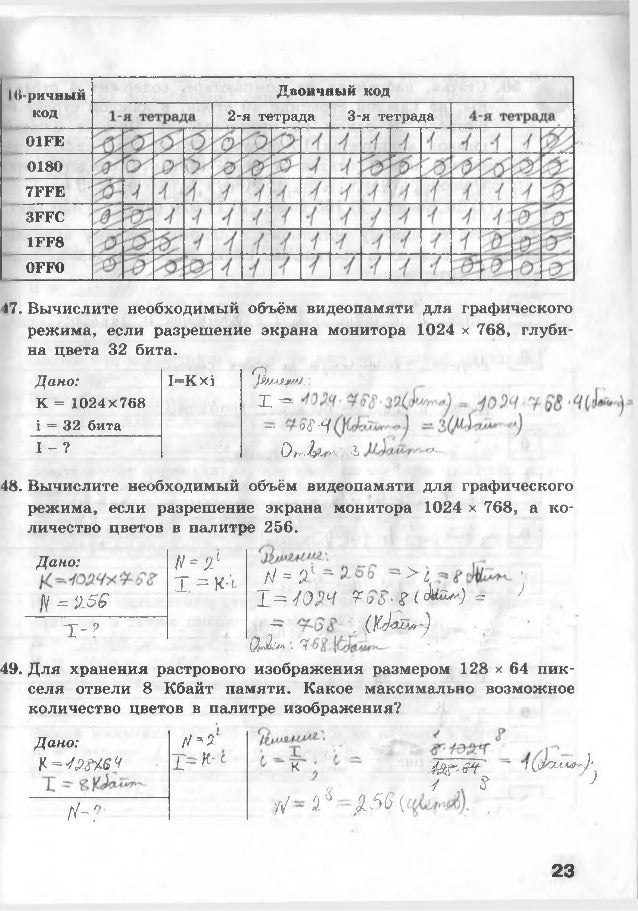 16-ричный код Двоичный код
1-я тетрада 2-я тетрада 3-я тетрада 4-я тетрада
01FE 0 0 0 0 0 0 0 1 1 1 1 1 1 1 1 0
0180 0 0 0 0 0 0 0 1 1 0 0 0 0 0 0 0
7FFE 0 1 1 1 1 1 1 1 1 1 1 1 1 1 1 0
3FFC 0 0 1 1 1 1 1 1 1 1 1 1 1 1 0 0
1FF8 0 0 0 1 1 1 1 1 1 1 1 1 1 0 0 0
0FF0 0 0 0 0 1 1 1 1 1 1 1 1 0 0 0 0
47. Вычислите необходимый объём видеопамяти для графического
режима, если разрешение экрана монитора 1024 × 768, глуби-
на цвета 32 бита.
Дано: I=K×i Решение:
K = 1024×768 I = 1024·768·32(бита) = 1024·768·4(байта)=
i = 32 бита = 768·4(Кбайта) = 3(Мбайта)
I – ? Ответ: 3 Мбайта
48. Вычислите необходимый объём видеопамяти для графического
режима, если разрешение экрана монитора 1024 × 768, а ко-
личество цветов в палитре 256.
Дано: N = 2^i Решение:
K=1024×768 I = K·i N = 2^i = 256 => i = 8 бит;
N = 256 I = 1024 768·8 (бит) =
I-? = 768 (Кбайт)
Ответ: 768 Кбайт
49. Для хранения растрового изображения размером 128 × 64 пик-
селя отвели 8 Кбайт памяти. Какое максимально возможное
количество цветов в палитре изображения?
Дано: N=2^i Решение: 1 8
K=128×64 I=K·i i = I/K, i = 8·1024/128·64 = 1(байт);
I = 8 Кбайт 1 8
N-? N = 2^8 = 256 (цветов).
23